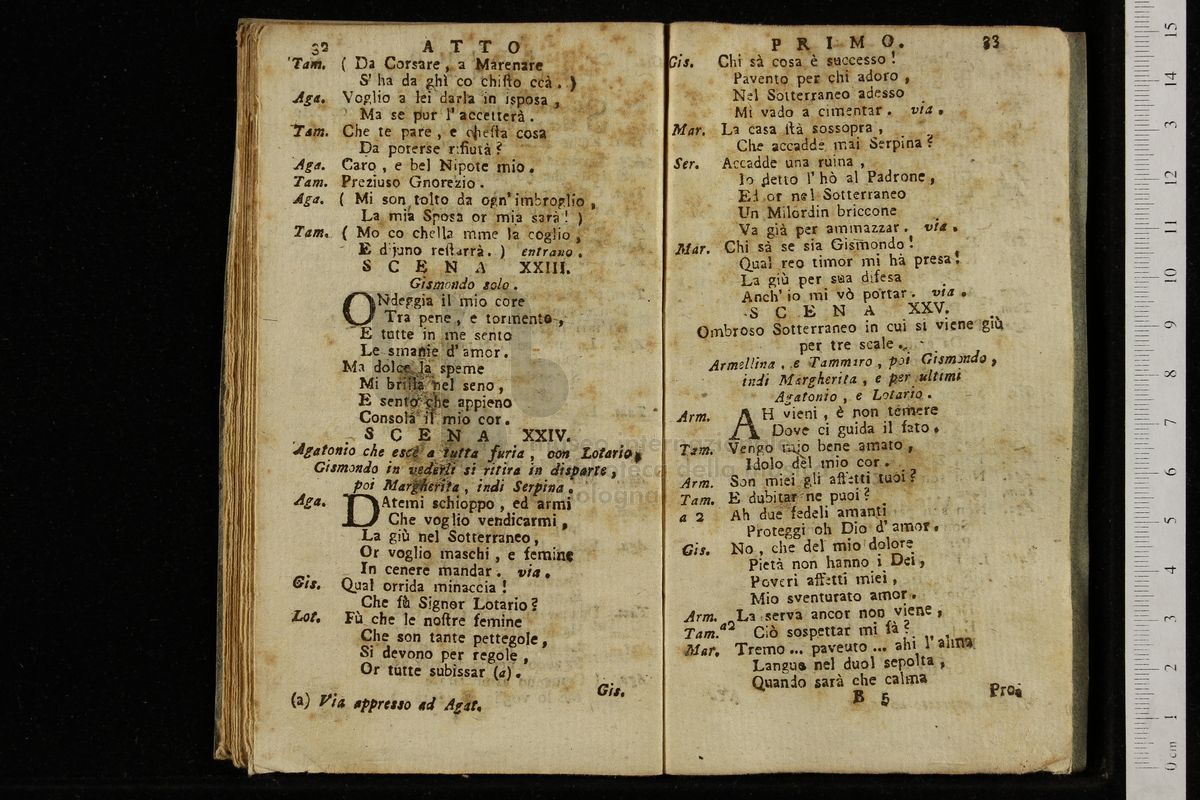 32 ATTO
Tam. ( Da Corsare, a Marenare
S' ha da ghì co chisto ccà. )
Aga. Voglio a lei darla in isposa,
Ma se pur l'accetterà.
Tam. Che te pare, e chesta cosa
Da poterse rifiutà?
Aga. Caro, e bel Nipote mio.
Tam. Preziuso Gnorezio.
Aga. ( Mi son tolto da ogn' imbroglio,
La mia Sposa or mia sarà! )
Tam. ( Mo co chella mme la coglio,
E dijuno restarrà. ) entrano.
SCENA XXIII.
Gismondo solo.
ONdeggia il mio core
Tra pene, e tormento,
E tutte in me sento
Le smanie d'amor.
Ma dolce la speme
Mi brilla nel seno,
E sento che appieno
Consola il mio cor.
SCENA XXIV.
Agatonio che esce a tutta furia, con Lotario,
Gismondo in vederli si ritira in disparte,
poi Margherita, indi Serpina.
Aga. DAtemi schioppo, ed armi
Che voglio vendicarmi,
La giù nel Sotterraneo,
Or voglio maschi, e femine
In cenere mandar. via.
Gis. Qual orrida minaccia!
Che fù Signor Lotario?
Lot. Fù che le nostre femine
Che son tante pettegole,
Si devono per regole,
Or tutte subissar (a).
Gis.
(a) Via appresso ad Agat.
PRIMO. 33
Gis. Chi sà cosa è successo!
Pavento per chi adoro,
Nel Sotterraneo adesso
Mi vado a cimentar. via.
Mar. La casa stà sossopra,
Che accadde mai Serpina?
Ser. Accadde una ruina,
Io detto l'hò al Padrone,
Ed or nel Sotterraneo
Un Milordin briccone
Va già per ammazzar. via.
Mar. Chi sà se sia Gismondo!
Qual reo timor mi hà presa!
La giù per sua difesa
Anch' io mi vò portar. via.
SCENA XXV.
Ombroso Sotterraneo in cui si viene giù
per tre scale.
Armellina, e Tammaro, poi Gismondo,
indi Margherita, e per ultimi
Agatonio, e Lotario.
Arm. AH vieni, è non temere
Dove ci guida il fato.
Tam. Vengo mio bene amato,
Idolo del mio cor.
Arm. Son miei gli affetti tuoi?
Tam. E dubitar ne puoi?
a 2 Ah due fedeli amanti
Proteggi oh Dio d'amor.
Gis. No, che del mio dolore
Pietà non hanno i Dei,
Poveri affetti miei,
Mio sventurato amor.
Arm. La serva ancor non viene,
Tam. a2 Ciò sospettar mi fà?
Mar. Tremo ... paveuto ... ahi l'alma
Langue nel duol sepolta,
Quando sarà che calma
B 5 Pro-